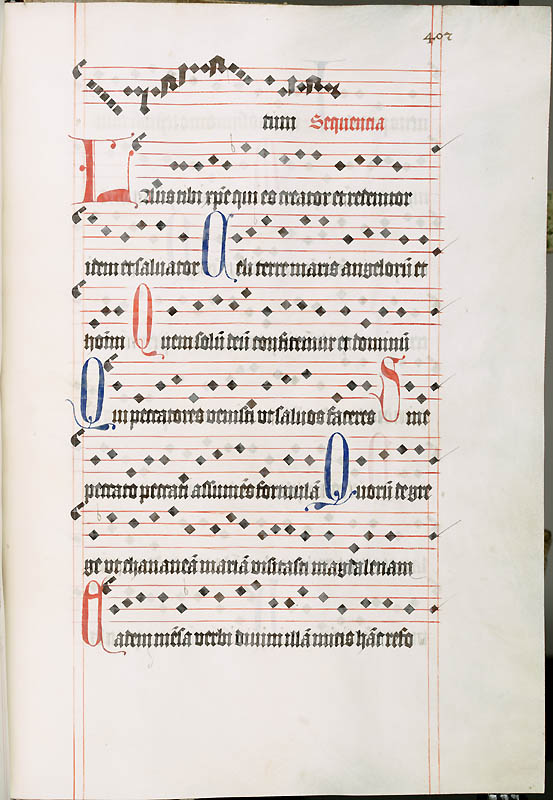 407
tum Sequencia
LAus tibi xp̄e qui es creator et redemtor
idem et saluator Celi terre maris angelorū et
hoīm Quem solū deū confitemur et dominū
Qui peccatores venisti vt saluos faceres Sine
peccato peccati assumēs formulā Quorū de gre
ge vt chananeā mariā visitasti magdalenam
Eadem mēsa verbi diuini illā micis hāc refo